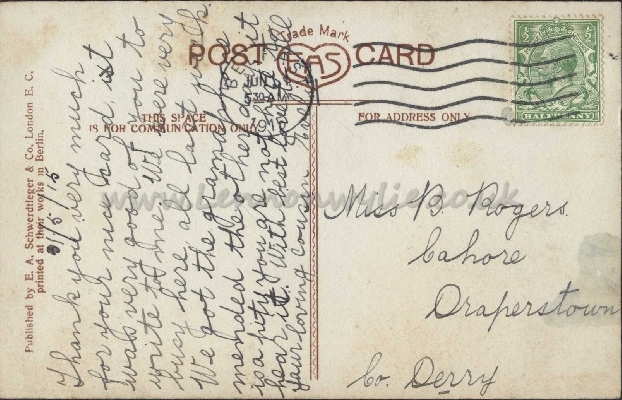 Trade Mark
POST CARD
EAS
THIS SPACE
IS FOR COMMUNICATION ONLY
FOR ADDRESS ONLY
HALFPENNY
JUN
5 30 AM
Published by E. A. Schwerdtfeger & Co., London E. C.
printed at their works in Berlin.
Thank you very much
for your nice card. it
was very good of you to
write to me. We were very
busy here all last week
We got the gramophone
mended the other day it
is a pity you are not
hear it. With best love
your loving cousin
Miss B. Rogers
Cahore
Draperstown
Co. Derry
www.lennonwylie.co.uk